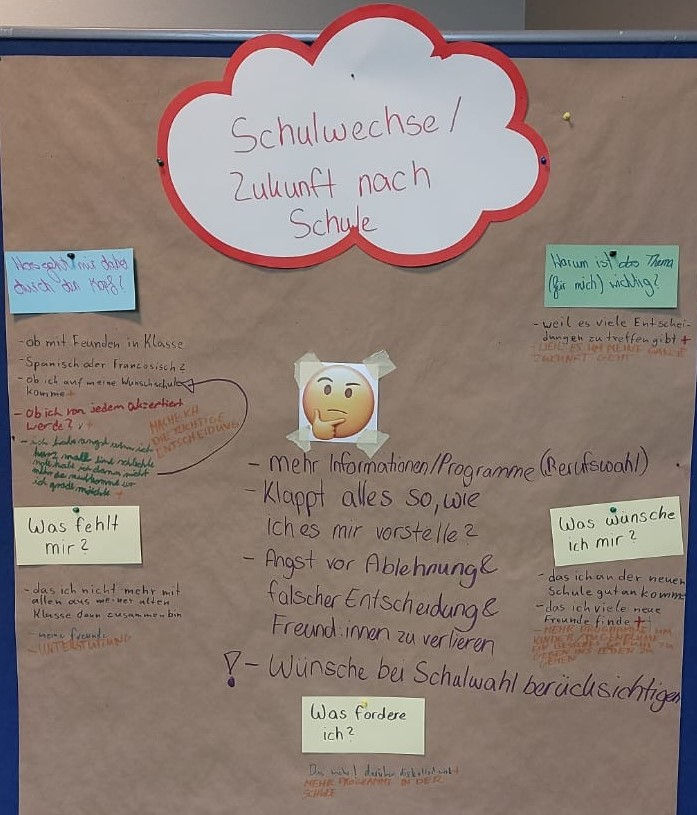 Schulwechse/
Zukunft nach
Schule
Was geht mir dabei
durch den Kopf?
- ob mit Feunden in Klasse
- Spanisch oder Francösisch?
- ob ich auf meine Wunschschule
komme +
- Ob ich von jedem akzeptiert
werde? +
MACHE ICH
DIE RICHTIGE
ENTSCHEIDUNG
- ich habe angst wenn ich
kurz mal eine schlechte
note habe ich dann nicht
mehr da
ich grade möchte +
Warum ist das Thema
(für mich) wichtig?
- weil es viele Entschei-
dungen zu treffen gibt +
- WEIL ES UM MEINE GANZE
ZUKUNFT GEHT
- mehr Informationen/Programme (Berufswahl)
- Klappt alles so, wie
ich es mir vorstelle?
- Angst vor Ablehnung &
falscher Entscheidung &
Freund:innen zu verlieren
! - Wünsche bei Schulwahl berücksichtigen
Was fehlt
mir?
- das ich nicht mehr mit
allen aus meiner alten
Klasse dann zusammen bin
- meine freunde
- UNTERSTÜTZUNG
Was wünsche
ich mir?
- das ich an der neuen
Schule gut ankomme
- das ich viele neue
Freunde finde +
- MEHR UM
KINDER/JUGENDLICHE
ZU
LEBEN ZU
GEHEN
Was fordere
ich?
Das mehr darüber
MEHR PROGRAMME IN DER
SCHULE